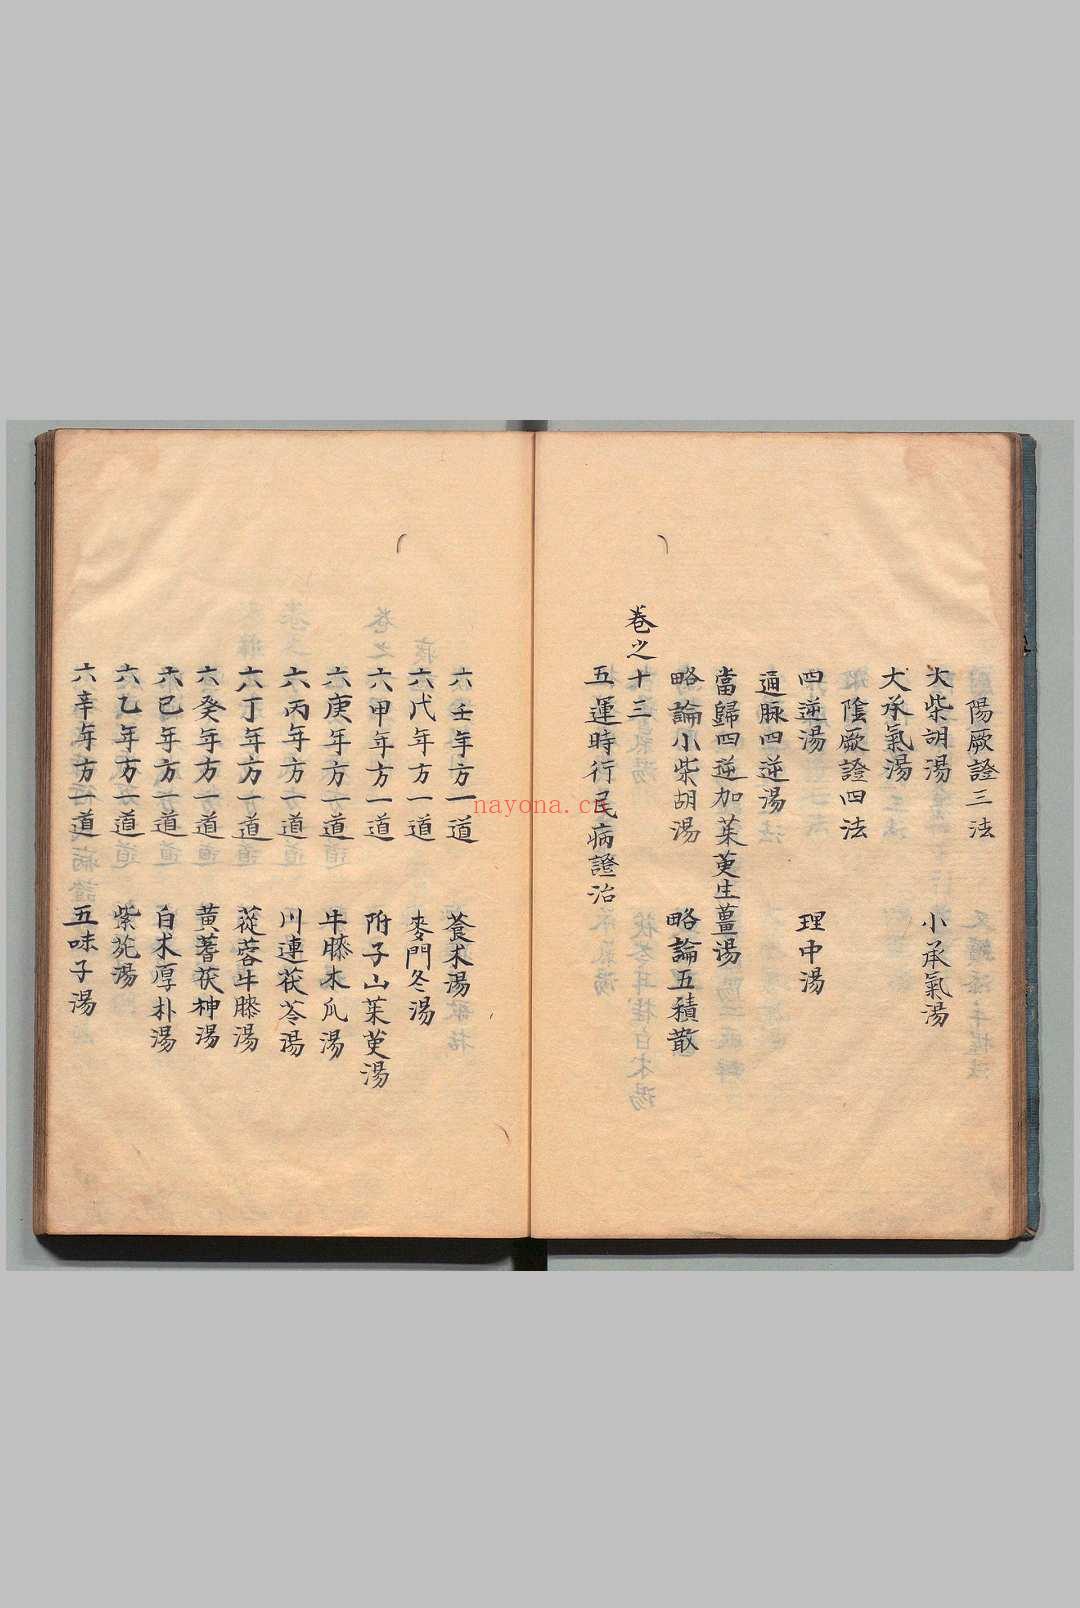 陽厥證三法
大柴胡湯　小承氣湯
大承氣湯
陰厥證四法
四逆湯　理中湯
通脉四逆湯
當歸四逆加茱萸生薑湯
略論小柴胡湯　略論五積散
卷之十三
五運時行民病證治
六壬年方一道　蒼术湯
六戊年方一道　麥門冬湯
六甲年方一道　附子山茱萸湯
六庚年方一道　牛膝木瓜湯
六丙年方一道　川連茯苓湯
六丁年方一道　蓯蓉牛膝湯
六癸年方一道　黃蓍茯神湯
六己年方一道　白术厚朴湯
六乙年方一道　紫菀湯
六辛年方一道　五味子湯
nayona.cn